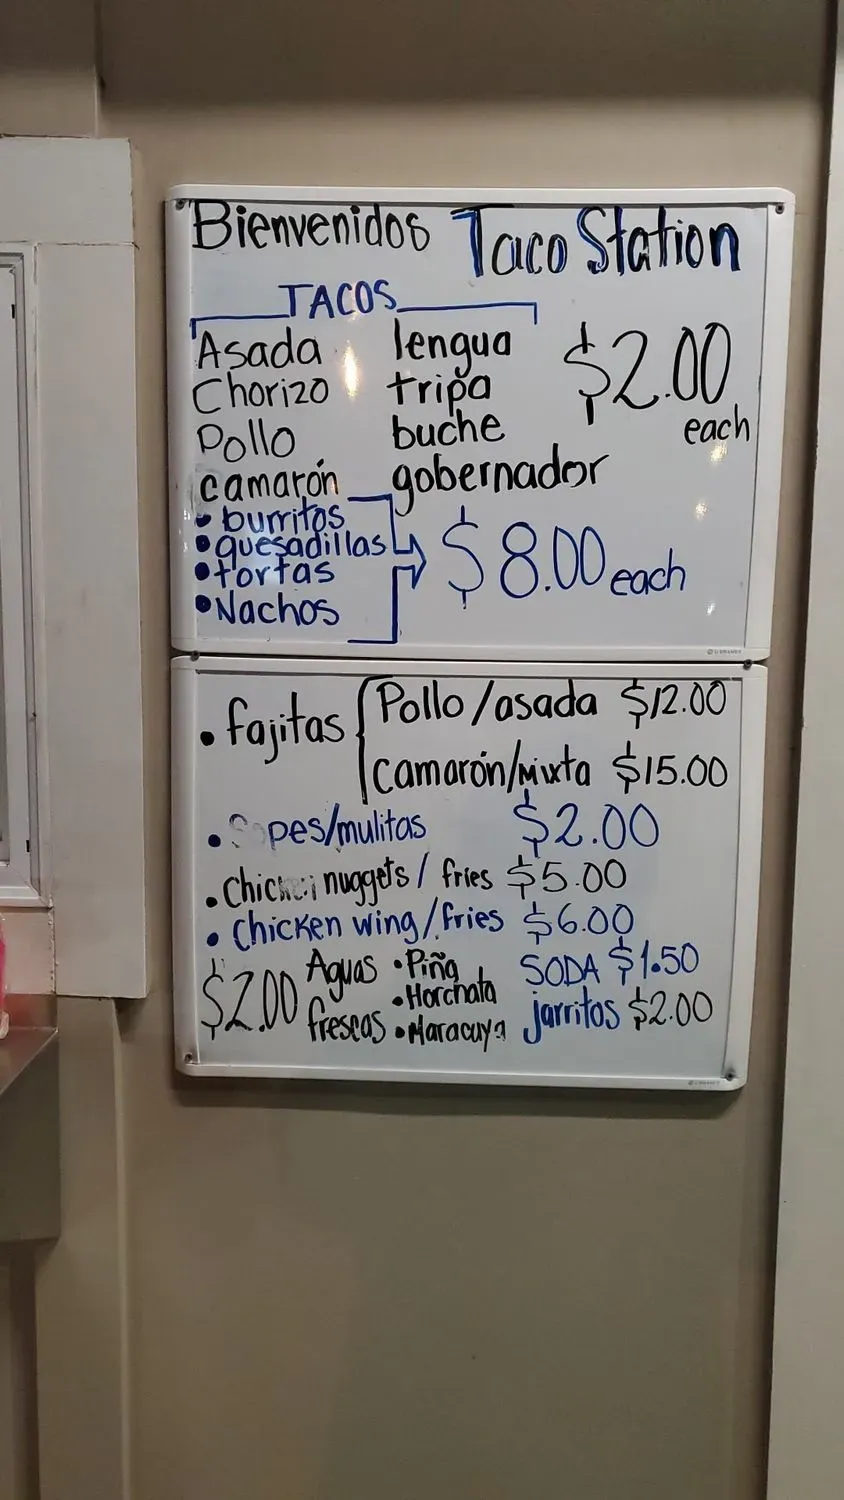 Bienvenidos Taco Station
TACOS
Asada lengua $2.00
Chorizo tripa each
Pollo buche
camarón gobernador
• burritos
• quesadillas $8.00 each
• tortas
• Nachos
• fajitas Pollo/asada $12.00
camarón/mixta $15.00
• Sopes/mulitas $2.00
• Chicken nuggets/ fries $5.00
• Chicken wing/fries $6.00
$2.00 Aguas frescas
• Piña
• Horchata
• Maracuya
SODA $1.50
jarritos $2.00